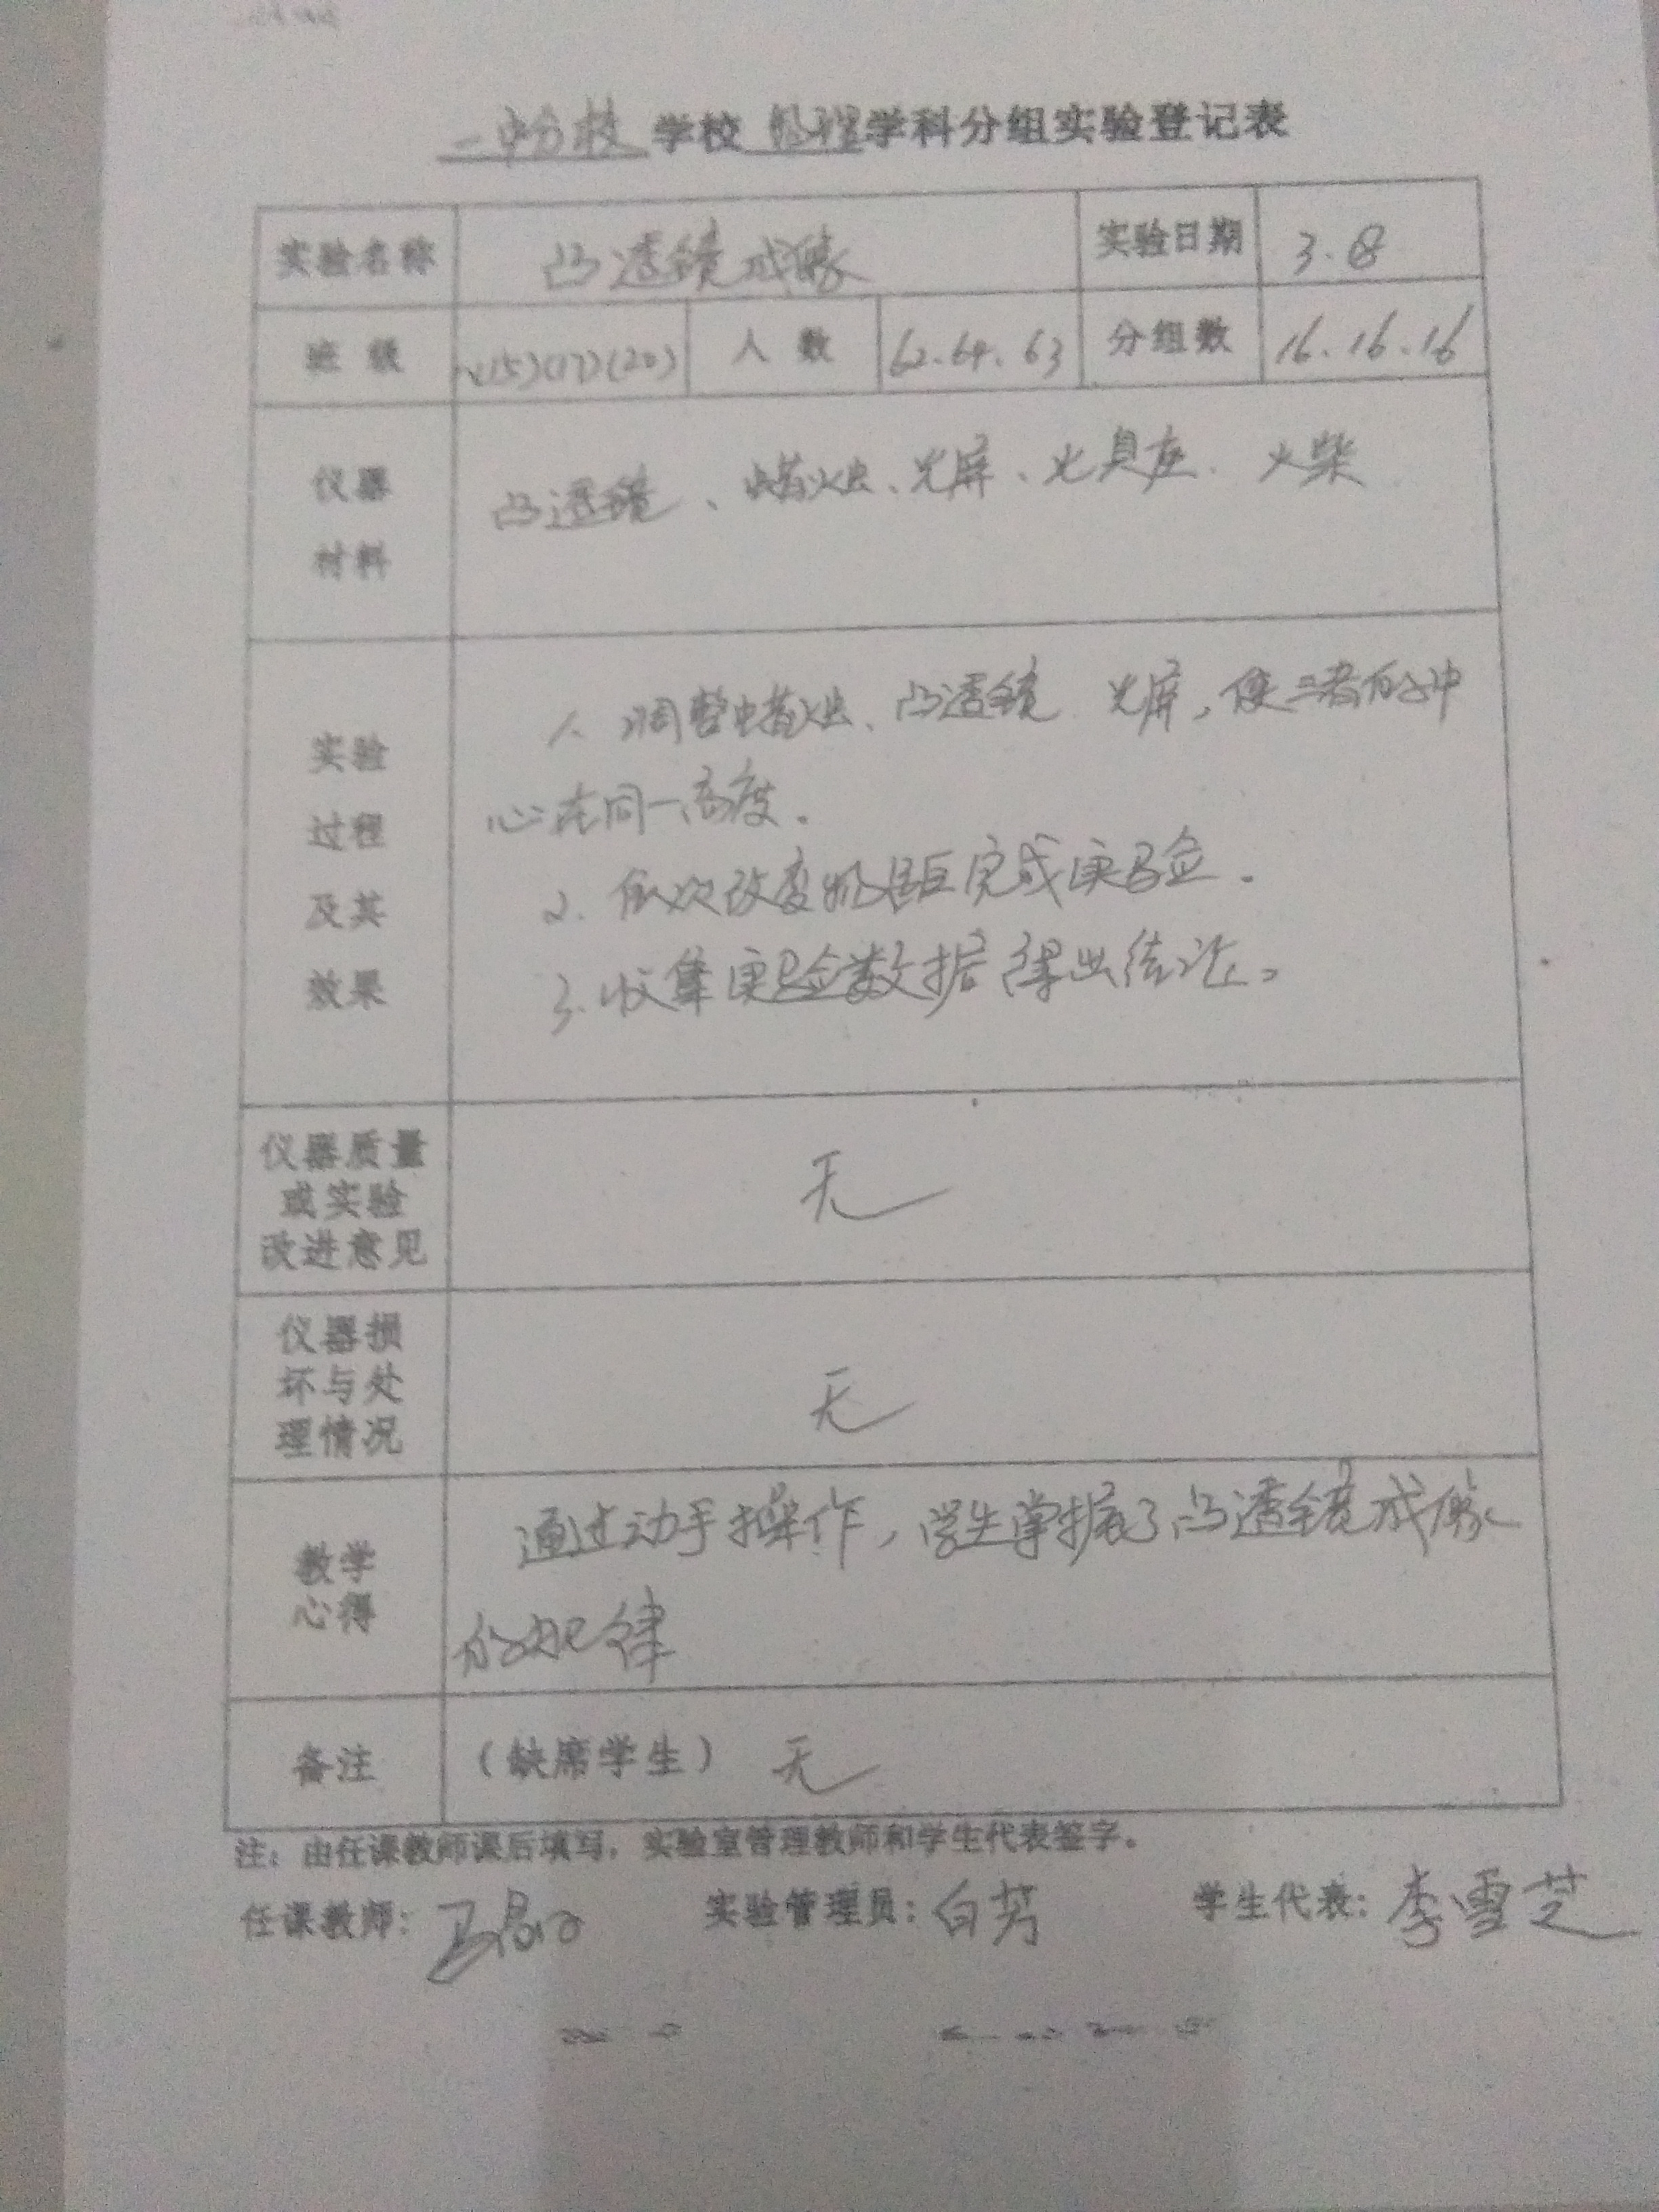 一中分校 学校 物理 学科分组实验登记表
实验名称 凸透镜成像 实验日期 3.8
班级 (15)(17)(20) 人数 62、64、63 分组数 16、16、16
仪器
材料
凸透镜、蜡烛、光屏、光具座、火柴
实验
过程
及其
效果
1、调整蜡烛、凸透镜、光屏,使三者的中
心在同一高度。
2、依次改变物距完成实验。
3、收集实验数据得出结论。
仪器质量
或实验
改进意见
无
仪器损
坏与处
理情况
无
教学
心得
通过动手操作,学生掌握了凸透镜成像
的规律
备注 (缺席学生) 无
注:由任课教师课后填写,实验室管理教师和学生代表签字。
任课教师: 实验管理员:白芳 学生代表:李雪芝